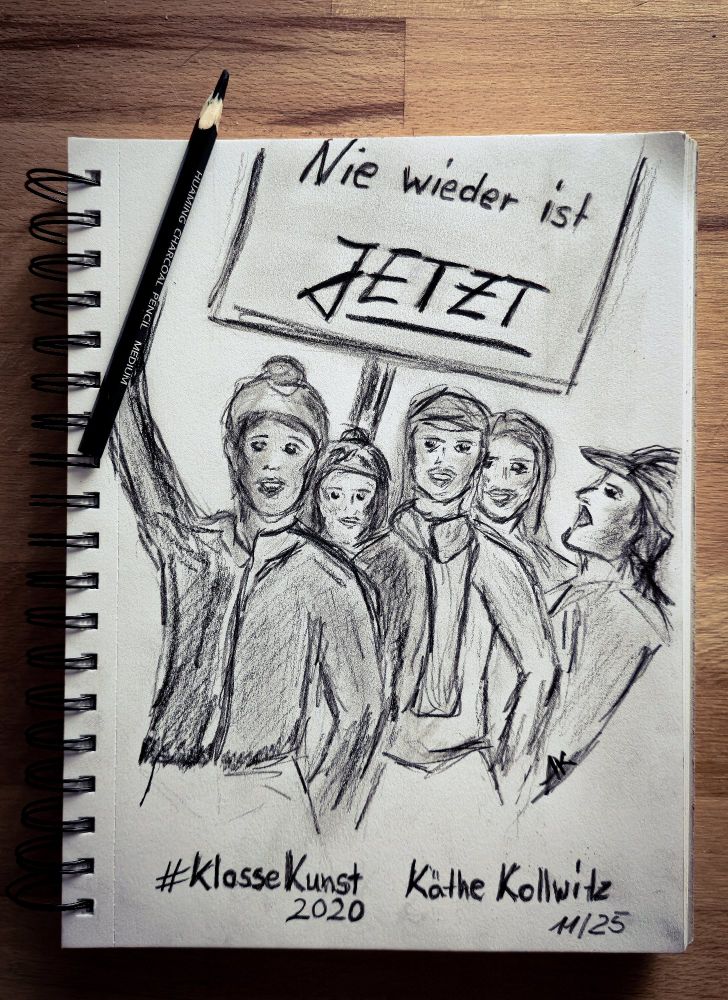 Nie wieder ist
JETZT
HUAMING CHARCOAL PENCIL MEDIUM
AK
#KlasseKunst
2020
Käthe Kollwitz
11/25